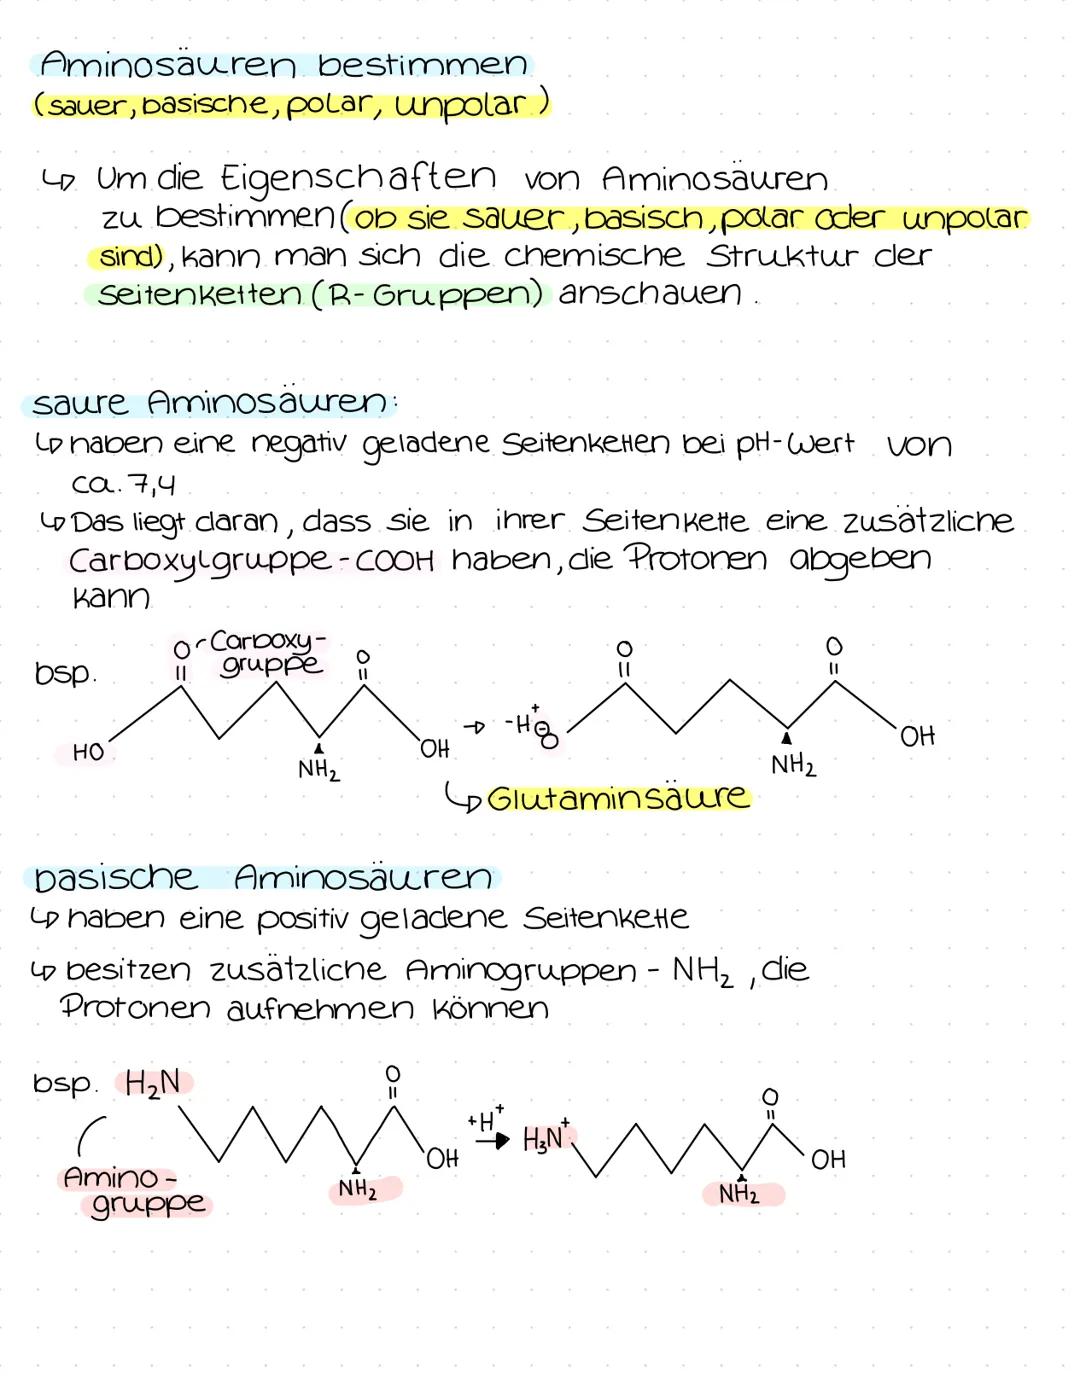 Aminosäuren bestimmen
(sauer, basische, polar, unpolar)
↳ Um die Eigenschaften von Aminosäuren
zu bestimmen (ob sie sauer, basisch, polar oder unpolar
sind), kann man sich die chemische Struktur der
Seitenketten (R-Gruppen) anschauen.
saure Aminosäuren:
↳ haben eine negativ geladene Seitenketten bei pH-Wert von
ca. 7,4
↳ Das liegt daran, dass sie in ihrer Seitenkette eine zusätzliche
Carboxylgruppe - COOH haben, die Protonen abgeben
kann
bsp.
O Carboxy-
gruppe
O
HO
NH₂
OH
→ -H⁺
⊖O
O
O
NH₂
OH
↳ Glutaminsäure
basische Aminosäuren
↳ haben eine positiv geladene Seitenkette
↳ besitzen zusätzliche Aminogruppen - NH₂, die
Protonen aufnehmen können
bsp. H₂N
Amino-
gruppe
O
OH
NH₂
+H⁺
→
H₃N⁺
O
OH
NH₂